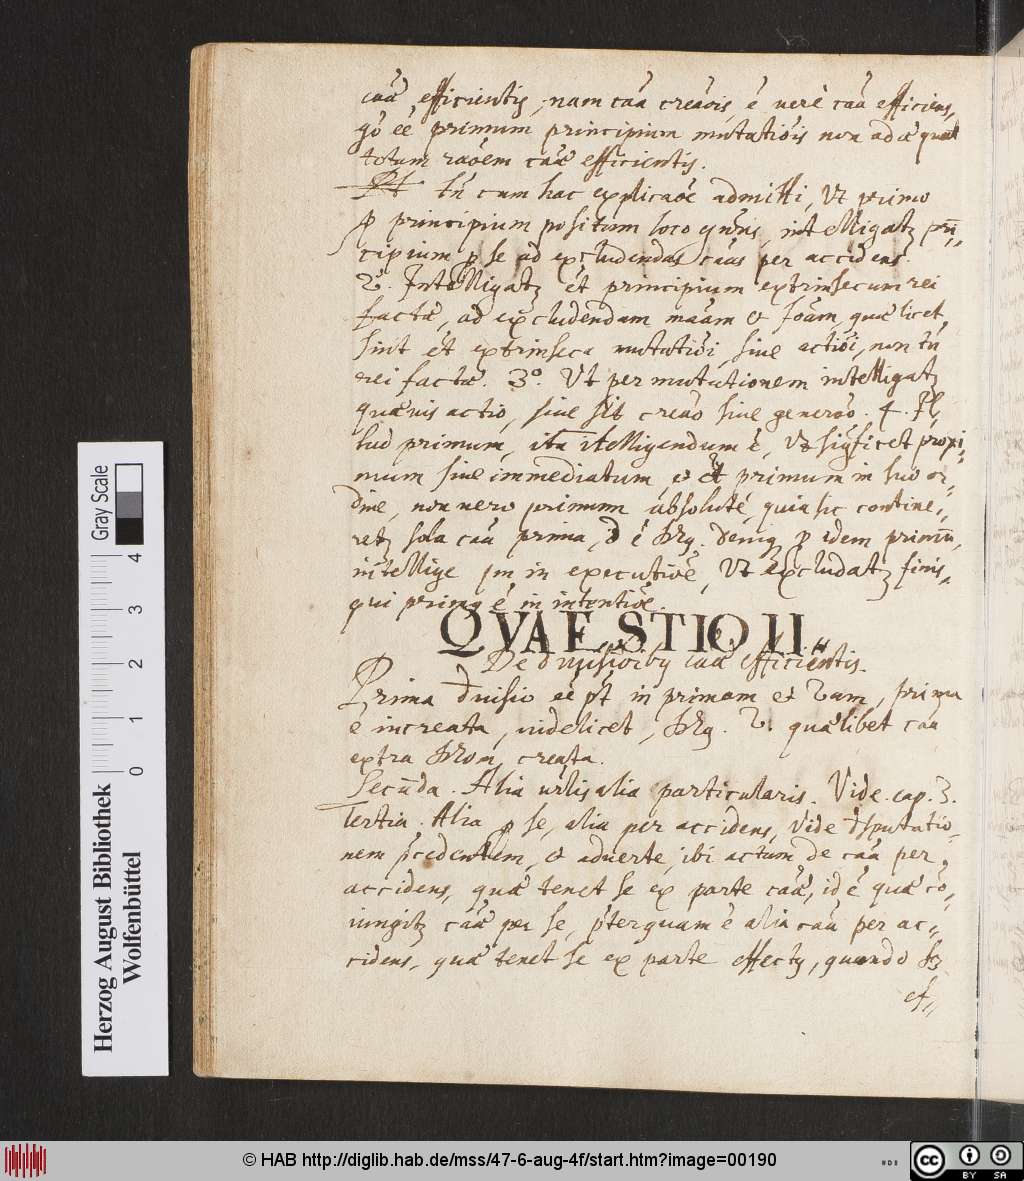 cuã efficientis, nam caã creãois, é veré caã efficiens,
gò eé primum principium mutatiõis non adæquat
totum raõem cuæ efficientis.
Pt tñ cum hac explicaõe admitti, ut primo
p principium positum loco gñris, intelligatz prī„
cipium p se ad excludendas caãs per accidens.
2°. Intelligatz ét principium extrinsecum rei
factæ, ad excludendam maãm & foãm, quæ licet
sint ét extrinseca mutatiõi, siue actiõi, non tñ
rei factæ. 3°. Ut per mutationem intelligatz
quæuis actio, siue sit creaõ siue generaõ. 4. Il„
lud primum, ita itelligendum é, ut sigficet proxi„
mum siue immediatum, & ét primum in suo or„
dine, non vero primum absoluté, quia sic contine„
retz sola caã prima, é Deniq p idem primũ,
intellige in executioē, Ut excludatz finis„
qui primq é in intentioē.
QVAESTIO II"
De diuisioibq cuæ efficientis.
Prima diuisio eé pt in primam & 2am, prima
é increata, videlicet, 2. quælibet caã
extra creata.
Secūda. Alia urlis alia particularis. Vide cap. 3.
Tertia. Alia p se, alia per accidens, Vide disputatio„
nem pcedentem, & aduerte, ibi actum de caã per
accidens, quæ tenet se ex parte caæ, id é quæ cõ„
iungitz caæ per se, pterquam é alia caã per ac„
cidens, quæ tenet se ex parte effectq, quando
ef„
Gray Scale
0 1 2 3 4
Herzog August Bibliothek
Wolfenbüttel
© HAB http://diglib.hab.de/mss/47-6-aug-4f/start.htm?image=00190
cc BY SA